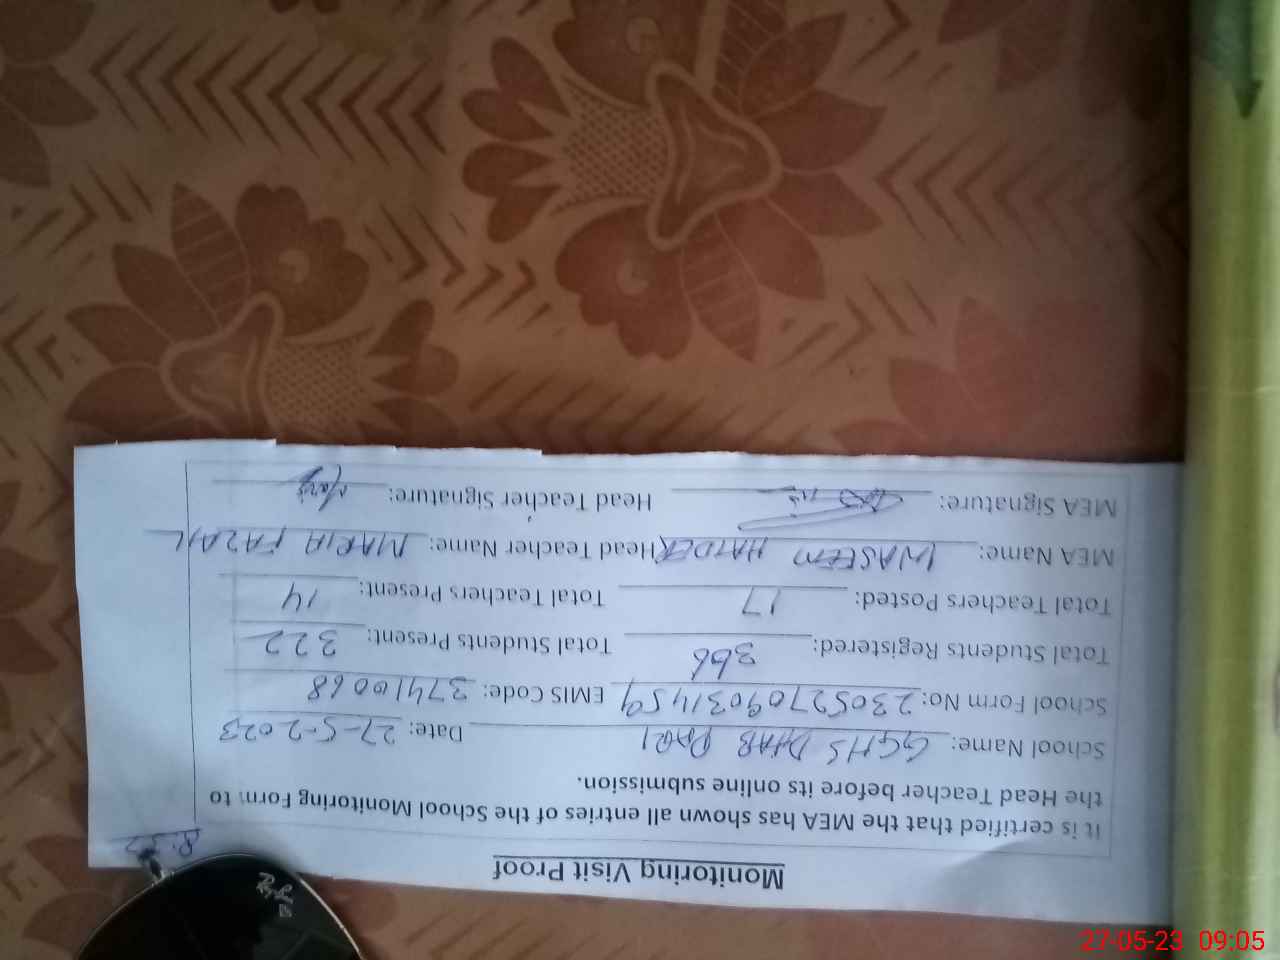 Monitoring Visit Proof
It is certified that the MEA has shown all entries of the School Monitoring Form to
the Head Teacher before its online submission.
School Name: GGHS DHAB PARI Date: 27-5-2023
School Form No: 230527090311459 EMIS Code: 37410068
Total Students Registered: 366 Total Students Present: 322
Total Teachers Posted: 17 Total Teachers Present: 14
MEA Name: WASEEM HAIDER Head Teacher Name: MARIA FAZAIL
MEA Signature: Head Teacher Signature:
27-05-23 09:05